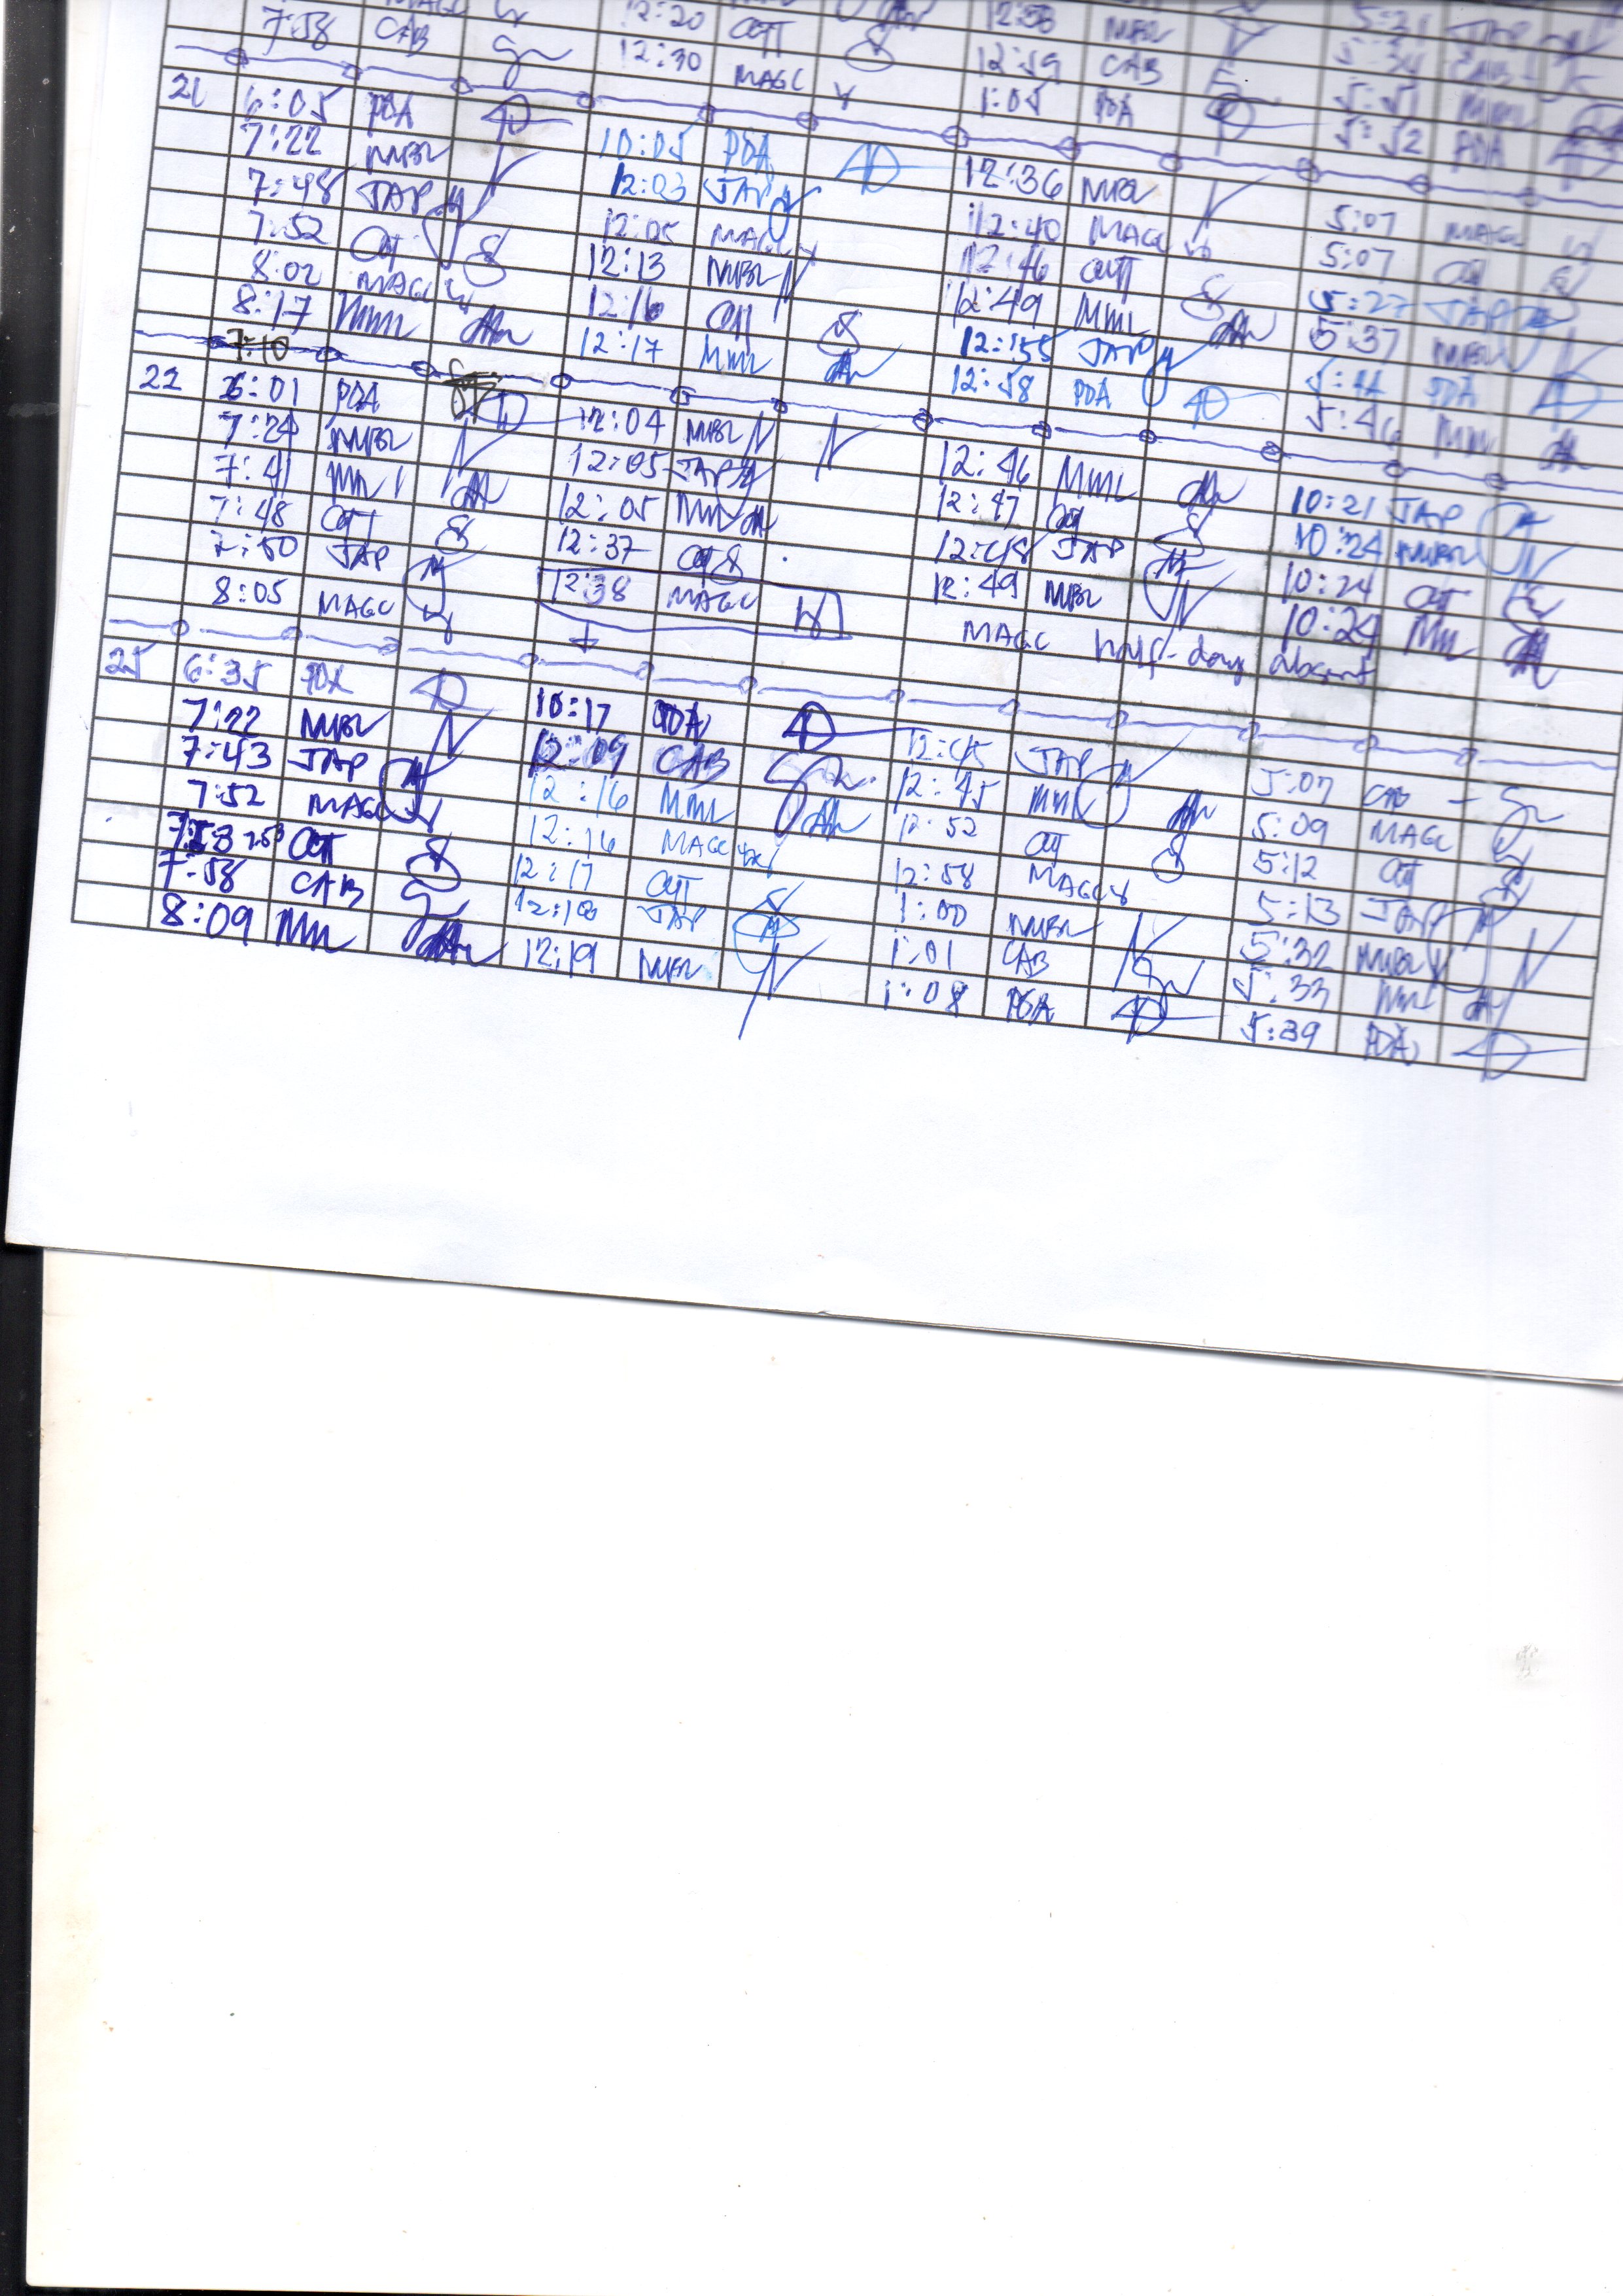 7:58 CAB 12:20 12:59 CAB
12:30 MAGC 1:05 PDA
21 6:05 PDA 5:52 PDA
7:22 NMBL 10:05 PDA 12:36 NMBL
7:48 JAP 12:03 JAP 12:40 MAGC 5:07 MAGC
7:52 CAJT 12:05 MAGC 12:46 CAJT 5:07 CAJT
8:02 MAGC 12:13 NMBL 12:49 MML 5:27 JAP
8:17 MML 12:16 CAJT 12:55 JAP 5:37 NMBL
7:10 12:17 MML 12:58 PDA 5:44 PDA
22 6:01 PDA 5:46 MML
7:24 NMBL 12:04 NMBL 12:46 MML
7:41 MML 12:05 JAP 12:47 CAJT 10:21 JAP
7:48 CAJT 12:05 MML 12:48 JAP 10:24 NMBL
7:50 JAP 12:37 CAJT 12:49 NMBL 10:24 CAJT
8:05 MAGC 12:38 MAGC MAGC half-day absent 10:24 MML
25 6:35 PDA
7:22 NMBL 10:17 PDA 12:45 JAP
7:43 JAP 12:09 CAB 12:45 MML 5:07 CAB
7:52 MAGC 12:16 MML 12:52 CAJT 5:09 MAGC
7:53 CAJT 12:16 MAGC 12:58 MAGC 5:12 CAJT
7:58 CAB 12:17 CAJT 1:00 NMBL 5:13 JAP
8:09 MML 12:18 JAP 1:01 CAB 5:32 NMBL
12:19 NMBL 1:08 PDA 5:33 MML
5:39 PDA